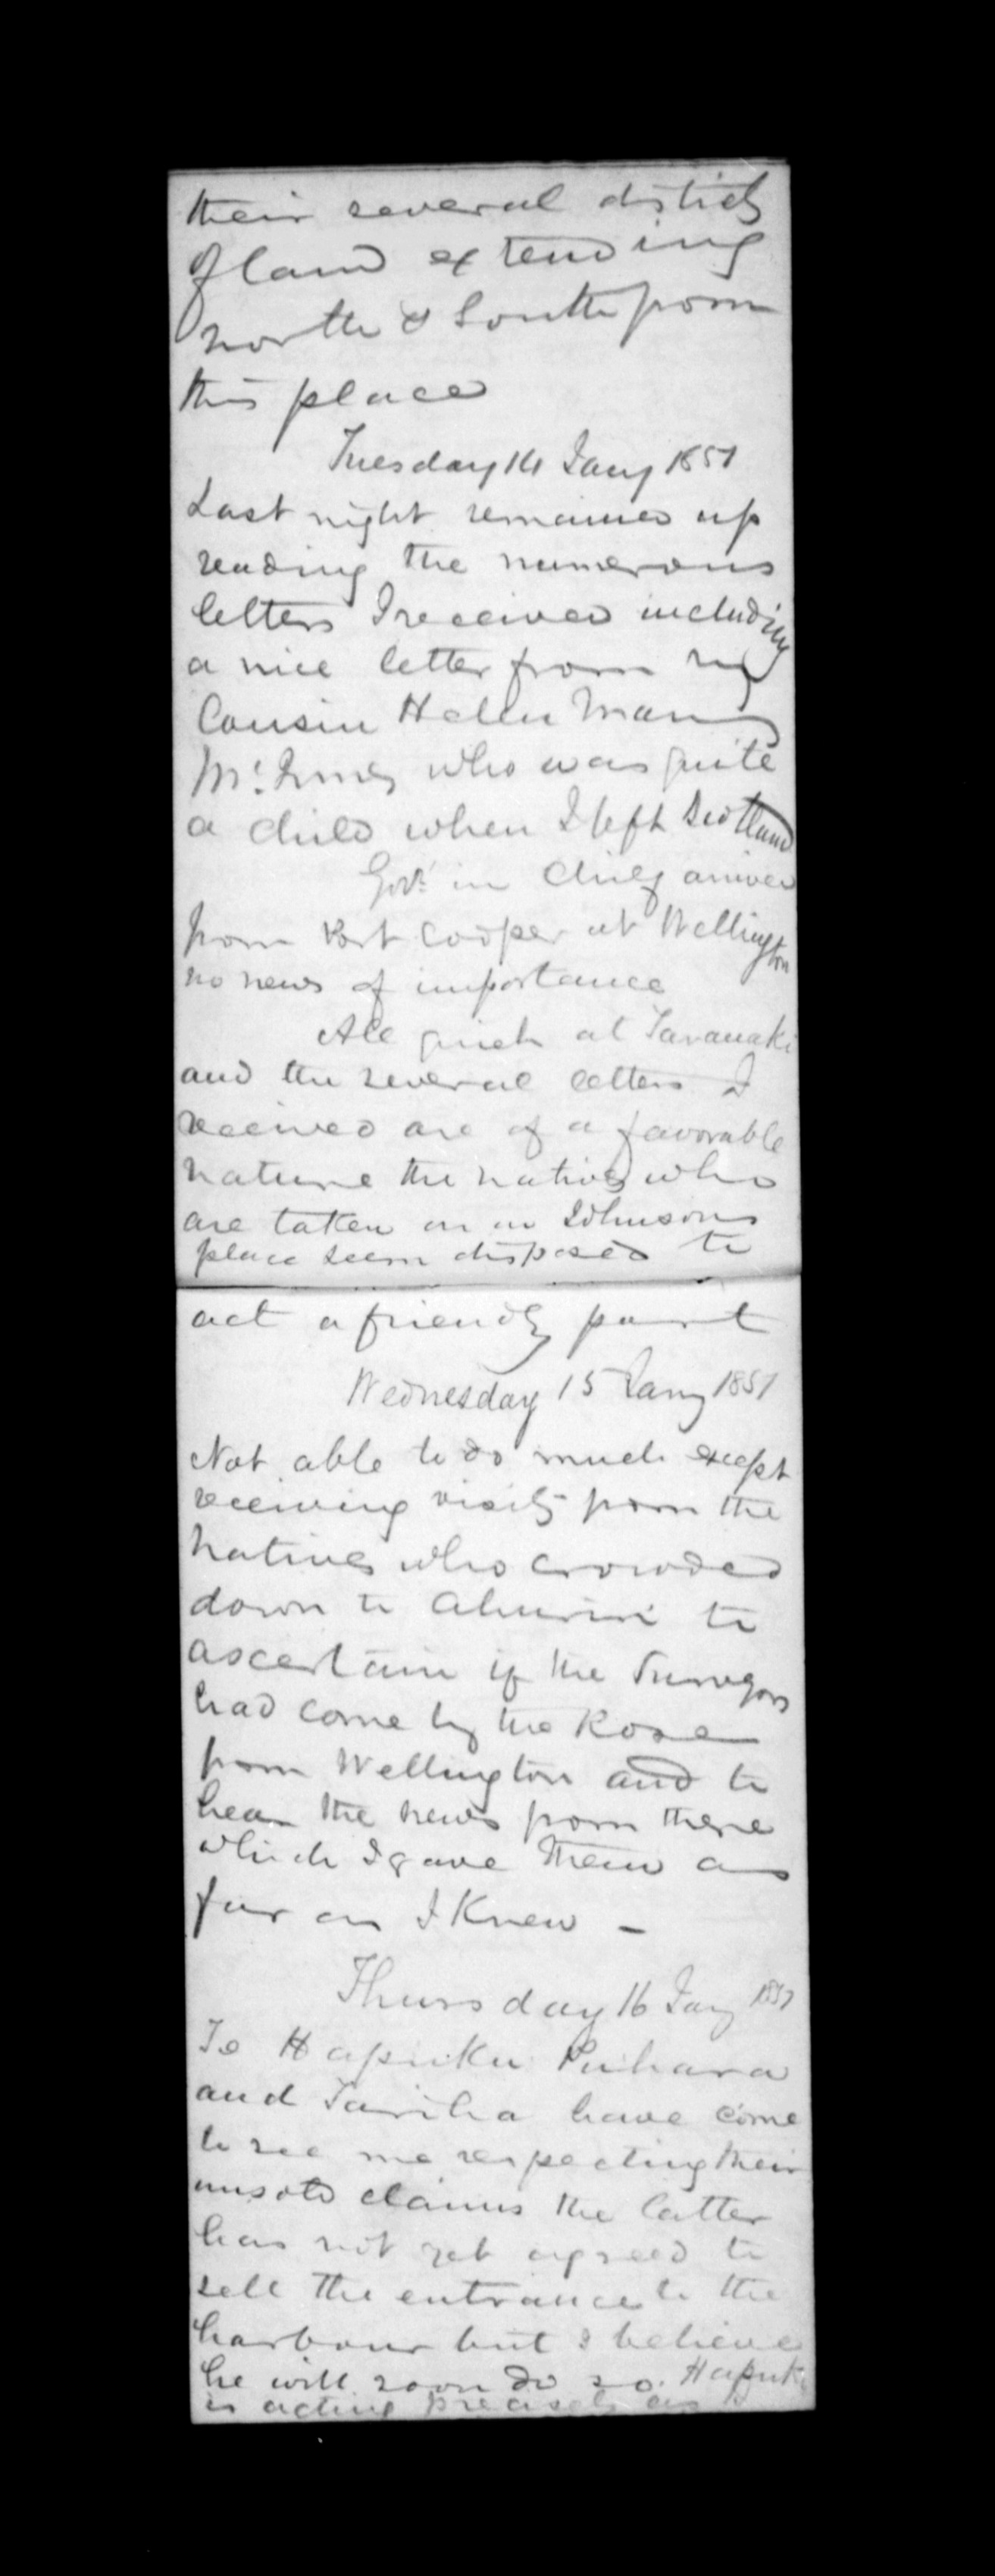 their several districts
of land extending
north & South from
this place
Tuesday 14 Jany 1851
Last night remained up
reading the numerous
letters I received including
a nice letter from my
Cousin Hellen Mary
McInnes who was quite
a child when I left Scotland
Govr in Chief arrived
from Port Cooper at Wellington
no news of importance
All quiet at Taranaki
and the several letters I
received are of a favorable
nature the natives who
are taken on in Johnsons
place seem disposed to
act a friendly part
Wednesday 15 Jany 1851
Not able to do much except
receiving visits from the
Natives who crowded
down to Ahuriri to
ascertain if the Surveyors
had come by the Rose
from Wellington and to
hear the news from there
which I gave them as
far as I Knew -
Thursday 16 Jany 1851
Te Hapuku Puhara
and Tariha have come
to see me respecting their
unsold claims the latter
has not yet agreed to
sell the entrance to the
harbour but I believe
he will soon do so. Hapuku
is acting precisely as